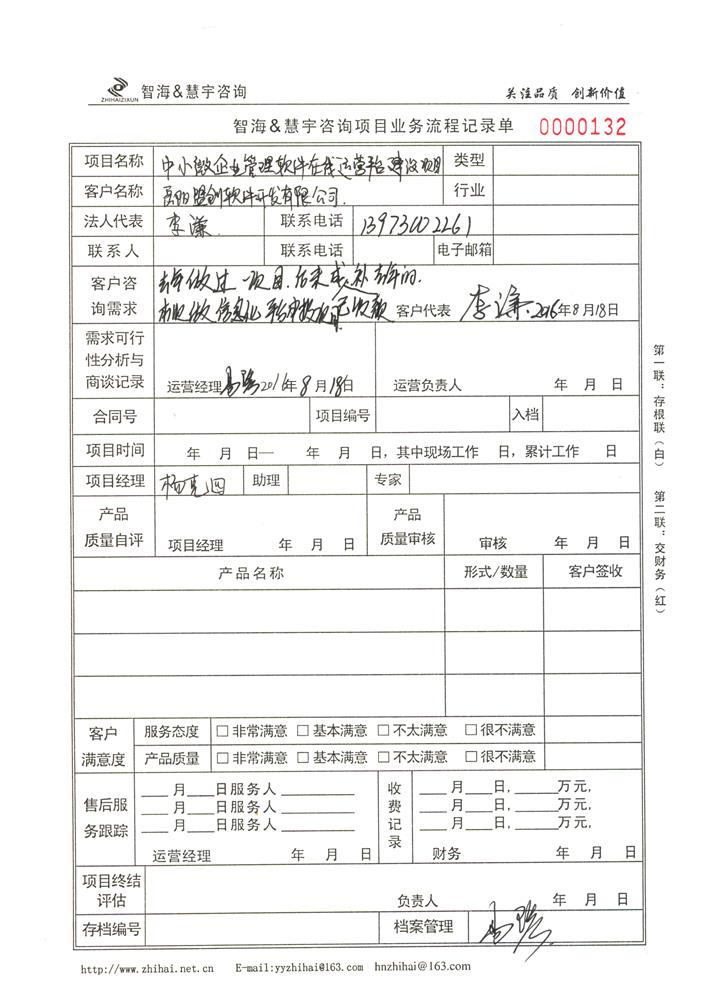 ZHIHAIZIXUN 智海&慧宇咨询 关注品质 创新价值
智海&慧宇咨询项目业务流程记录单 0000132
项目名称 中小微企业管理软件在线运营平台建设项目 类型
客户名称 岳阳盟创软件开发有限公司. 行业
法人代表 李濂 联系电话 13973002261
联系人 联系电话 电子邮箱
客户咨 去年做过一次项目.后来或补去年的.
询需求 做信息化平台 已收款 客户代表 李濂. 2016年8月18日
需求可行
性分析与
商谈记录 运营经理 2016年8月18日 运营负责人 年 月 日
合同号 项目编号 入档
项目时间 年 月 日— 年 月 日,其中现场工作 日,累计工作 日
项目经理 杨 助理 专家
产品 产品
质量自评 项目经理 年 月 日 质量审核 审核 年 月 日
产品名称 形式/数量 客户签收
客户 服务态度 □非常满意 □基本满意 □不太满意 □很不满意
满意度 产品质量 □非常满意 □基本满意 □不太满意 □很不满意
售后服
务跟踪 ___月___日服务人________
___月___日服务人________
___月___日服务人________
运营经理 年 月 日
收费记录 ___月___日,_____万元,
___月___日,_____万元,
___月___日,_____万元,
财务 年 月 日
项目终结
评估 负责人 年 月 日
存档编号 档案管理
http://www.zhihai.net.cn E-mail:yyzhihai@163.com hnzhihai@163.com
第一联:存根联(白) 第二联:交财务(红)